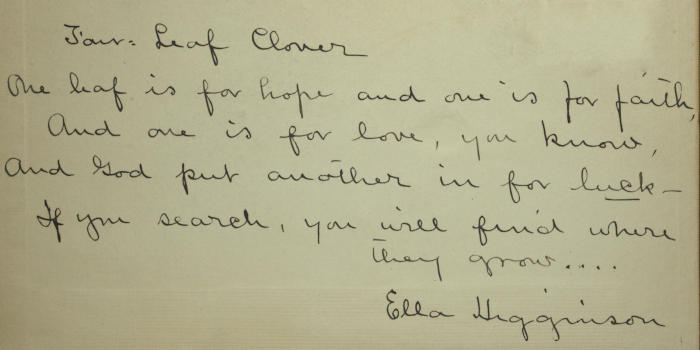 Four-Leaf Clover
One leaf is for hope and one is for faith,
And one is for love, you know,
And God put another in for luck—
If you search, you will find where
they grow....
Ella Higginson